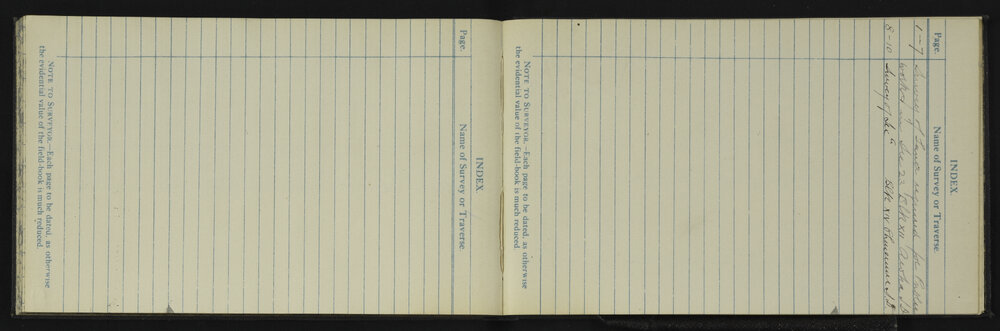 INDEX.
Page.
Name of Survey or Traverse
1-7 Survey of Land required for Public
Works in Sec 23 Blk XII Aroha S.D.
8-10 Survey of Sec 6 Blk XIV Ohinemuri S.D
NOTE TO SURVEYOR.—Each page to be dated, as otherwise
the evidential value of the field-book is much reduced.
INDEX.
Page.
Name of Survey or Traverse
NOTE TO SURVEYOR.—Each page to be dated, as otherwise
the evidential value of the field-book is much reduced.